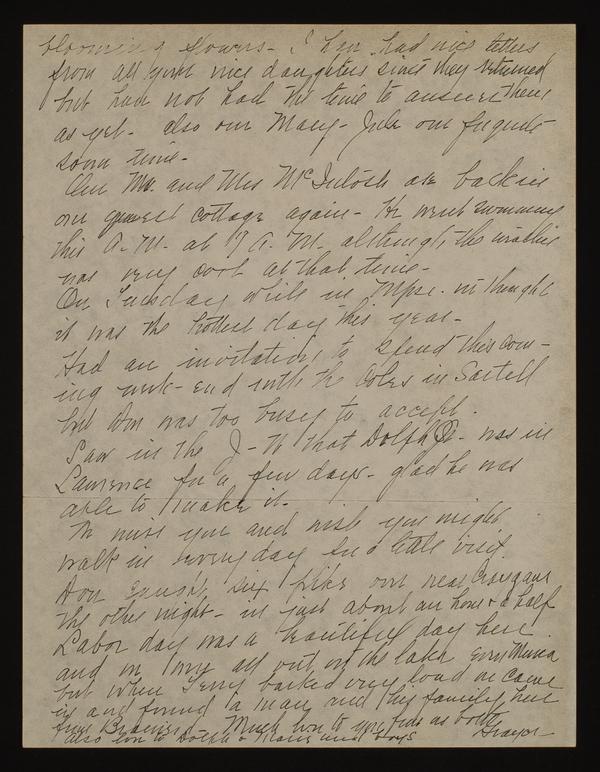 blooming flowers - I have had nice letters
from all your nice daughters since they returned
but have not had the time to answer them
as yet - also our Mary - Julie our
some time -
Our Mr. and Mrs McIntosh are back in
our guest cottage again - He went swimming
this A.M. at 7 A.M. although the weather
was very cool at that time -
On Tuesday while in Mpls. we thought
it was the hottest day this year -
Had an invitation to spend this com-
ing week-end with the Coles in Sartell
but Don was too busy to accept.
Saw in the J-W that Dolph Jr. was in
Lawrence for a few days - glad he was
able to make it -
We miss you and wish you might
walk in every day for a little visit.
Don caught six Pike over near
the other night - in just about an hour & a half
Labor day was a beautiful day here
and we were all out on the lake
but when Terry barked very loud we came
in and found a man and his family here
from Brainerd - Much love to you from us both
also love to Dolph & Marie and boys